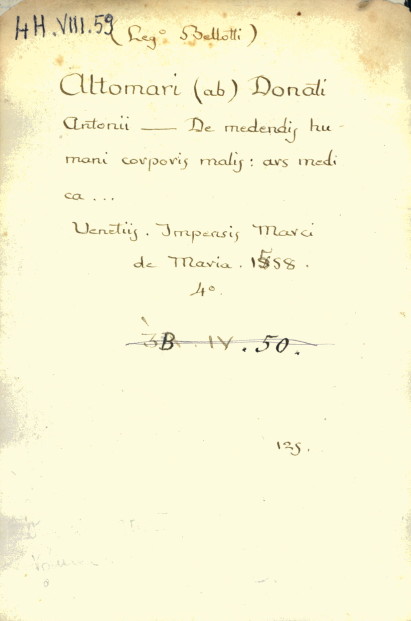 HH.VIII.59 (Leg° Bellotti)
Altomari (ab) Donati
Antonii — De medendis hu-
mani corporis malis: ars medi
ca...
Venetiis. Impensis Marci
de Maria. 1558.
4°.
B. IV. 50.
125.